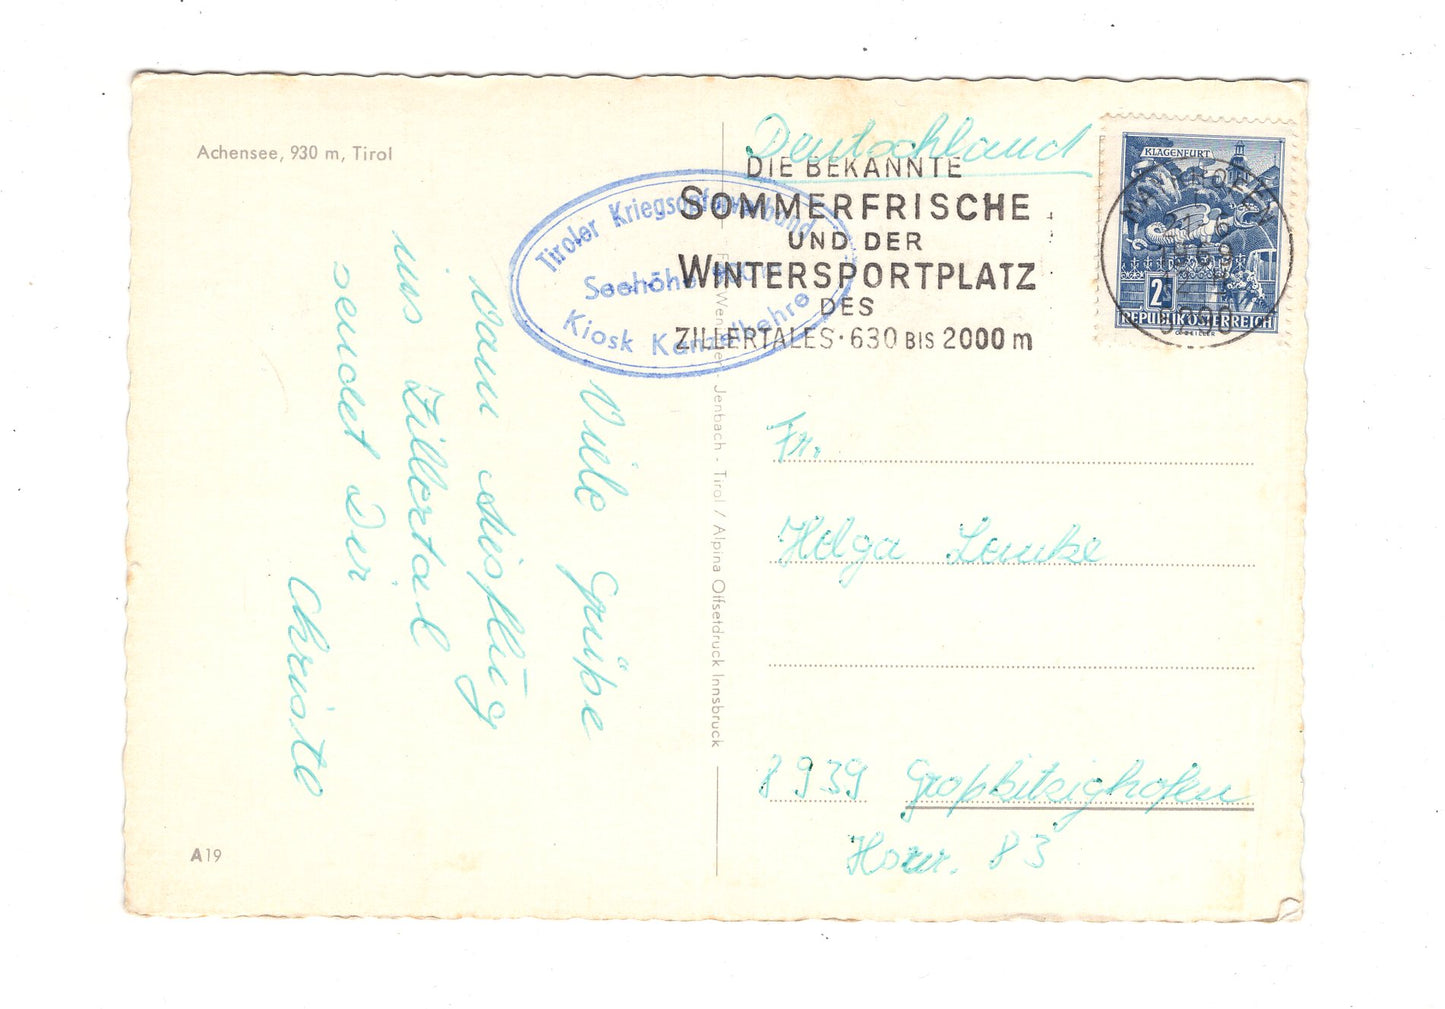 Achensee, 930 m, Tirol
Deutschland
DIE BEKANNTE
SOMMERFRISCHE
UND DER
WINTERSPORTPLATZ
DES
ZILLERTALES · 630 BIS 2000 m
KLAGENFURT
2S
REPUBLIK ÖSTERREICH
MAYRHOFEN
Tiroler Kriegsopferverband
Seehöhe
Kiosk Kanzelkehre
Jenbach - Tirol / Alpina Offsetdruck Innsbruck
Viele Grüße
vom Ausflug
ins Zillertal
sendet Dir
Christe
Fr.
Helga Lemke
8939 Großkitzighofen
Hsnr. 83
A19